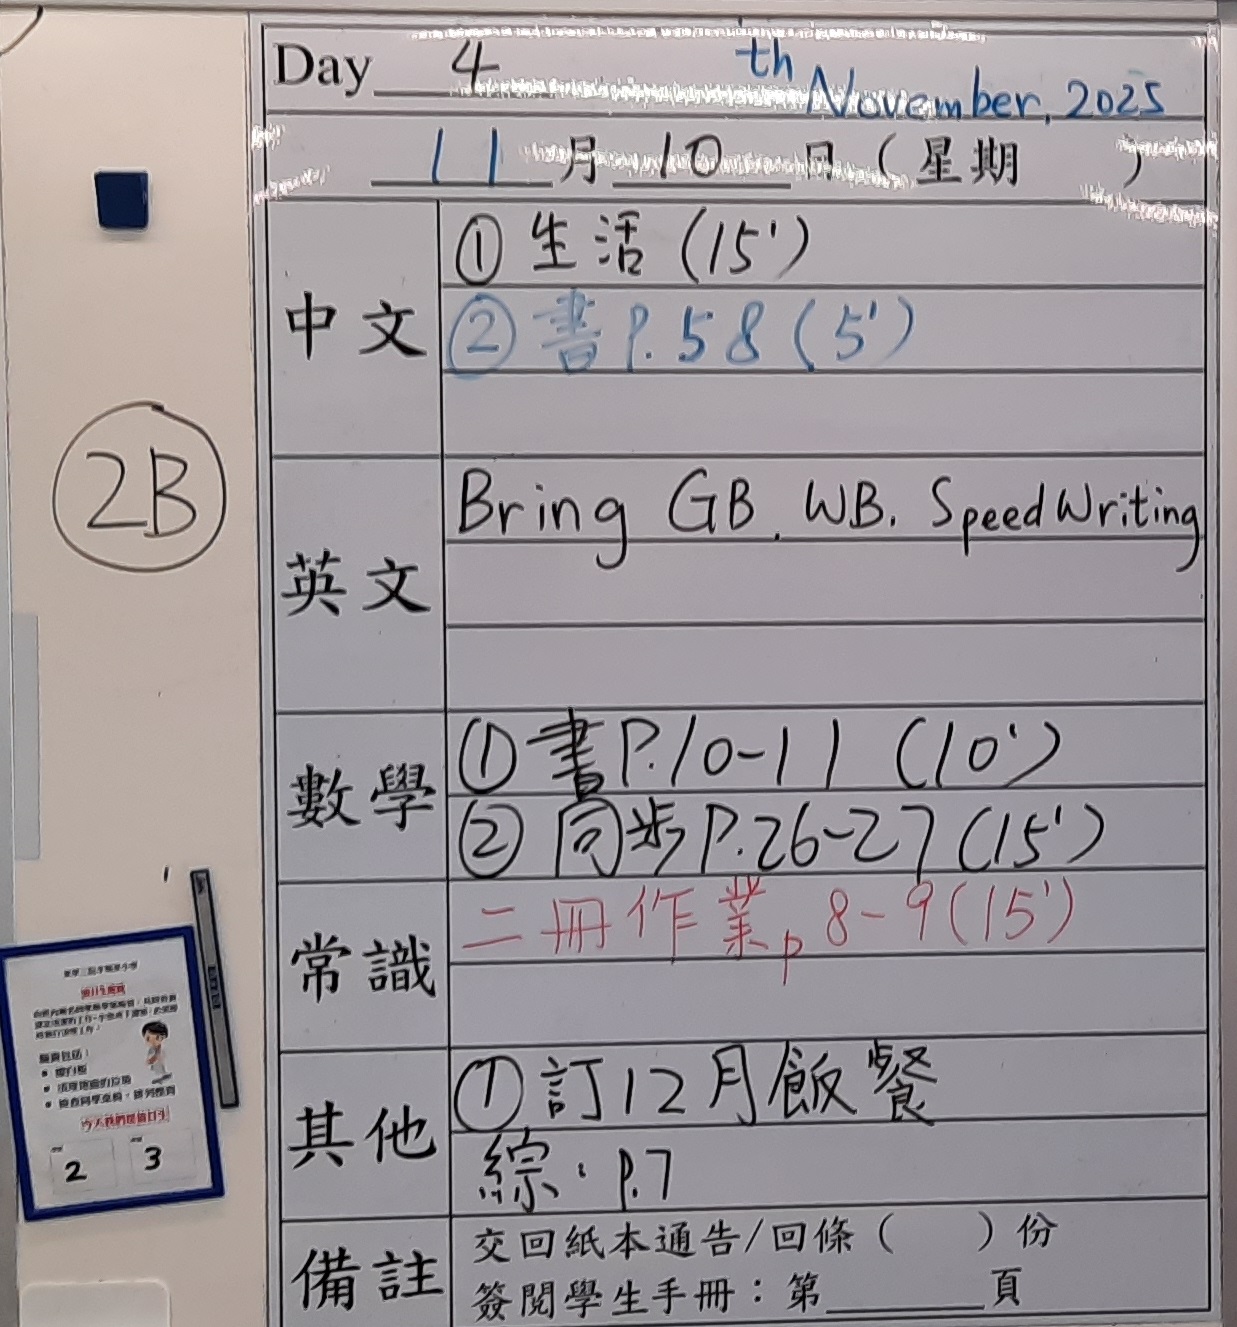 Day 4 th November, 2025
11月10日(星期 )
中文
① 生活(15')
② 書P.58(5')
英文
Bring GB. WB. Speed Writing
數學
① 書P.10-11 (10')
② 同步P.26-27(15')
常識
二冊作業p8-9(15')
其他
① 訂12月飯餐
綜:p.7
備註
交回紙本通告/回條( )份
簽閱學生手冊:第______頁
2B
2 3